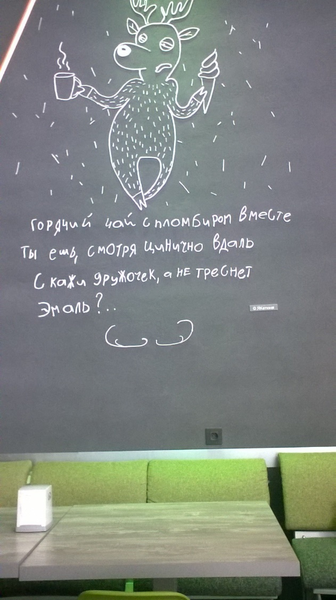 Горячий чай с пломбиром вместе
Ты ешь, смотря цинично вдаль
Скажи дружочек, а не треснет
Эмаль?..